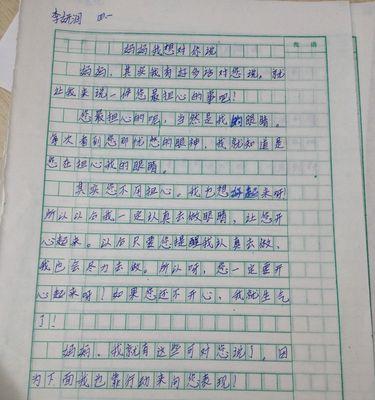 李妍润 四一
妈妈我想对你说
妈妈，其实我有好多话对您说，就
让我来说一件您最担心的事吧！
您最担心的呢，当然是我的眼睛。
每次看到您那忧愁的眼神，我就知道是
您在担心我的眼睛。
其实您不用担心。我也想好起来呀！
所以以后我一定认真去做眼睛，让您开
心起来。以后只要您提醒我认真去做，
我也会尽力去做。所以呀，您一定要开
心起来呀！如果您还不开心，我就生气
了！
妈妈，我就有这些可对您说了，因
为下面我也靠行动来向您表现！